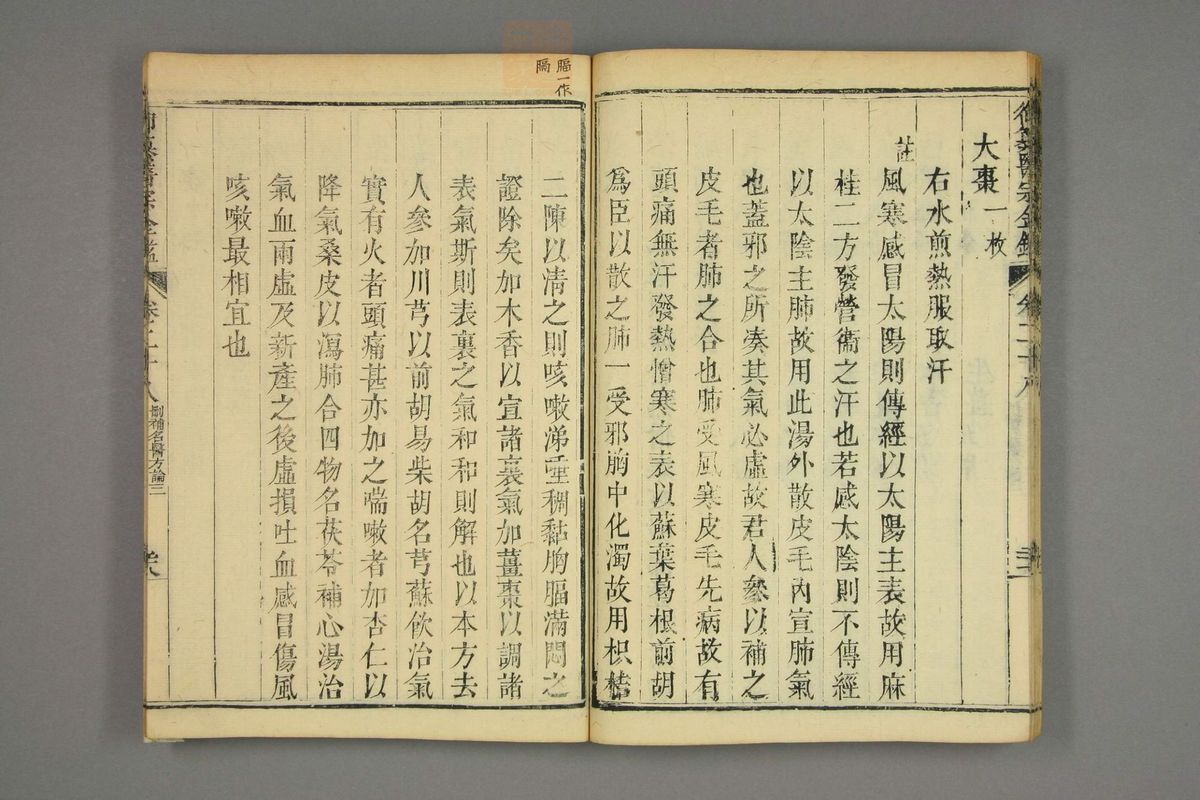 大棗一枚
右水煎熱服取汗
註
風寒感冒太陽則傳經以太陽主表故用麻
桂二方發營衞之汗也若感太陰則不傳經
以太陰主肺故用此湯外散皮毛內宣肺氣
也蓋邪之所凑其氣必虛故君人參以補之
皮毛者肺之合也肺受風寒皮毛先病故有
頭痛無汗發熱憎寒之表以蘇葉葛根前胡
爲臣以散之肺一受邪胸中化濁故用枳桔
膈一作
膈
二陳以清之則咳嗽涕唾稠黏胸膈滿悶之
證除矣加木香以宣諸裏氣加薑棗以調諸
表氣斯則表裏之氣和和則解也以本方去
人參加川芎以前胡易柴胡名芎蘇飲治氣
實有火者頭痛甚亦加之喘嗽者加杏仁以
降氣桑皮以瀉肺合四物名茯苓補心湯治
氣血兩虛及新產之後虛損吐血感冒傷風
咳嗽最相宜也
卷二十八
刪補名醫方論三